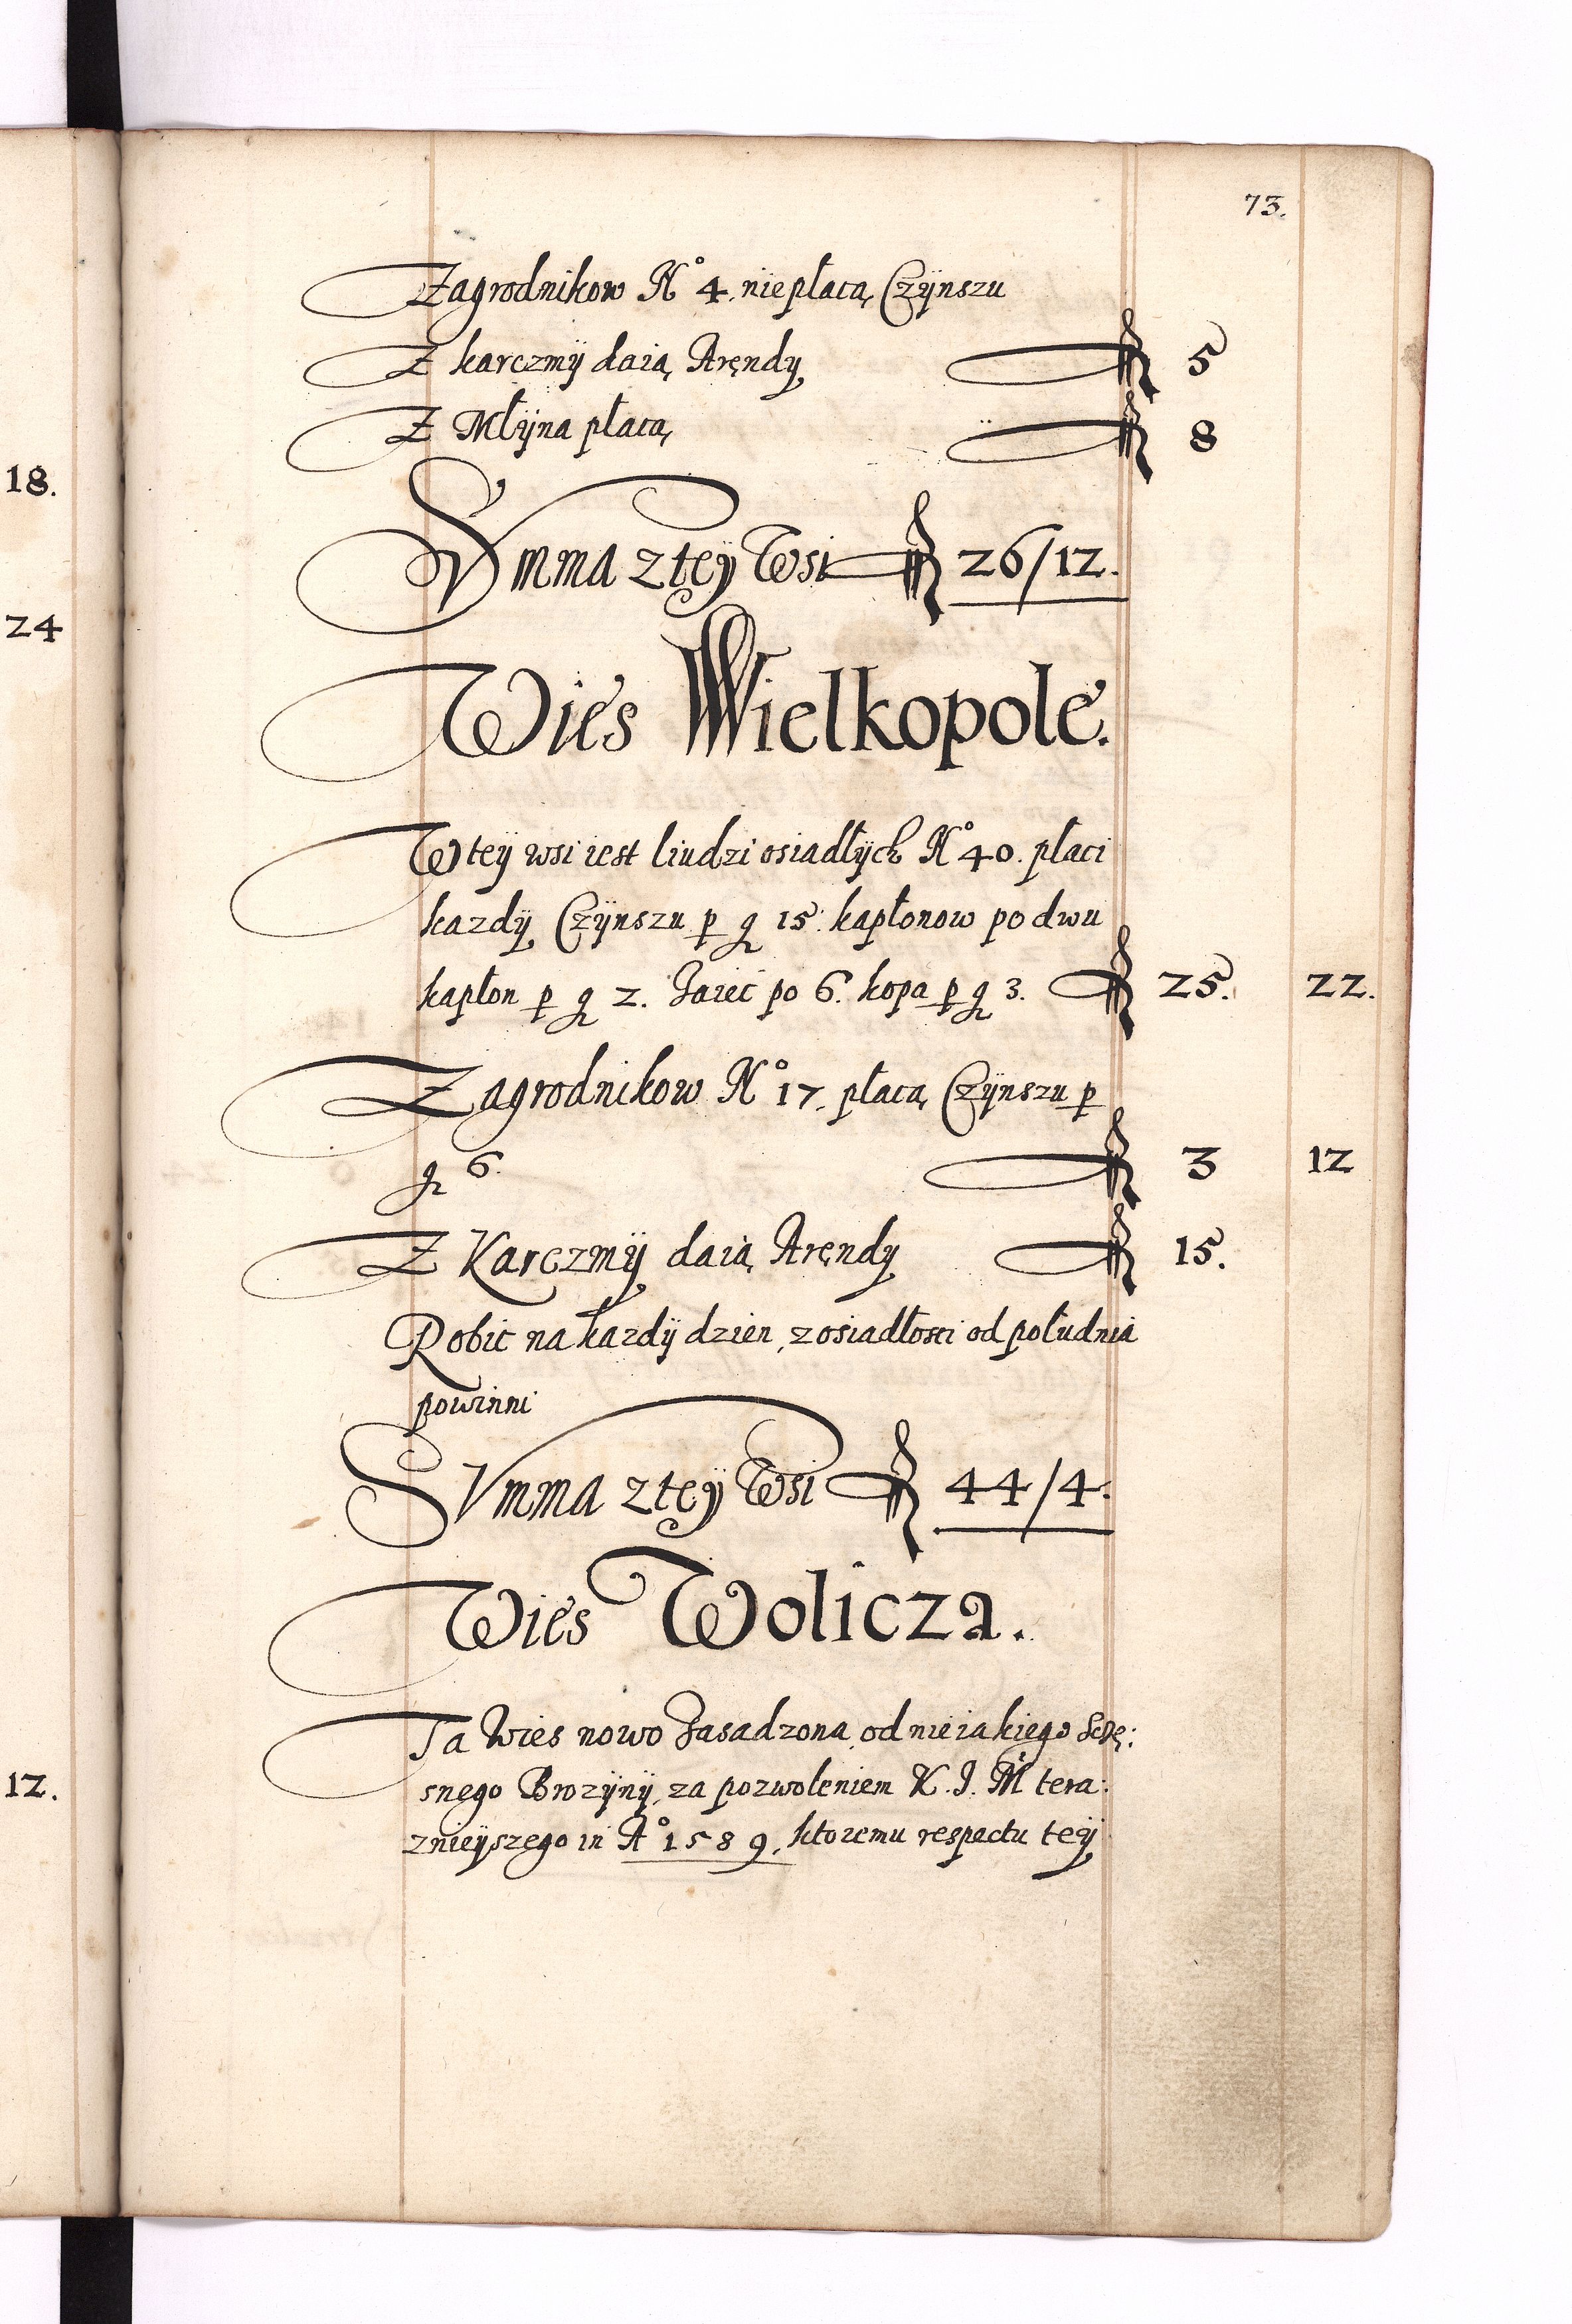 73.
Zagrodnikow Nº 4. nie płacą Czÿnszu
Z karczmÿ daią Arędy 5
Z Młÿna płacą 8
SVmma z teÿ Wsi 26/12.
18.
24
Wies Wielkopole.
W teÿ wsi iest liudzi osiadłÿch Nº 40. płaci
kazdÿ Czÿnszu p g 15. kapłonow po dwu
kapłon p g 2. Jaiec po 6. kopa p g 3. 25. 22.
Zagrodnikow Nº 17. płacą Czÿnszu p
g 6. 3 12
Z Karczmÿ daią Aręndy 15.
Robic na kazdÿ dzien, z osiadłosci od południa
powinni
SVmma z teÿ Wsi 44/4.
Wies Wolicza.
Ta Wies nowo Zasadzona, od nieiakiego Sczę:
snego Brozÿnÿ, za pozwoleniem K. J. M tera:
znieÿszego in Aº 1589, ktoremu respectu teÿ
12.